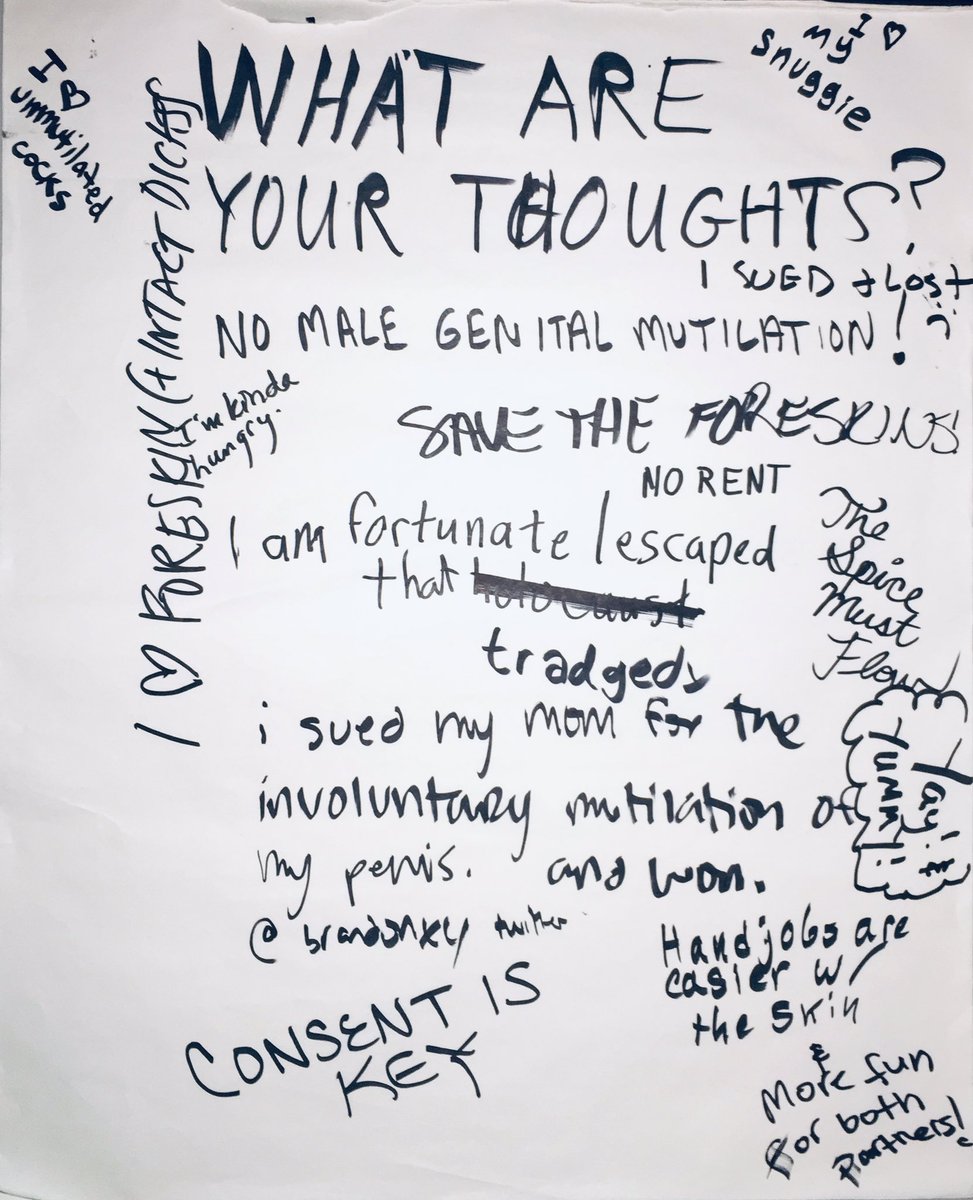 I ♡
unmutilated
cocks
I ♡
my
snuggie
WHAT ARE
YOUR THOUGHTS?
I SUED + LOST :(
NO MALE GENITAL MUTILATION!
I ♡ FORESKIN (+ INTACT DICKS)
I'm kinda
hungry.
SAVE THE FORESKINS
NO RENT
I am fortunate I escaped
that holocaust
tradgedy
The
Spice
Must
Flow
i sued my mom for the
involuntary mutilation of
my penis. and won.
Yay!
Yummy!
CONSENT IS
KEY
Handjobs are
easier w/
the skin
&
More fun
for both
partners!